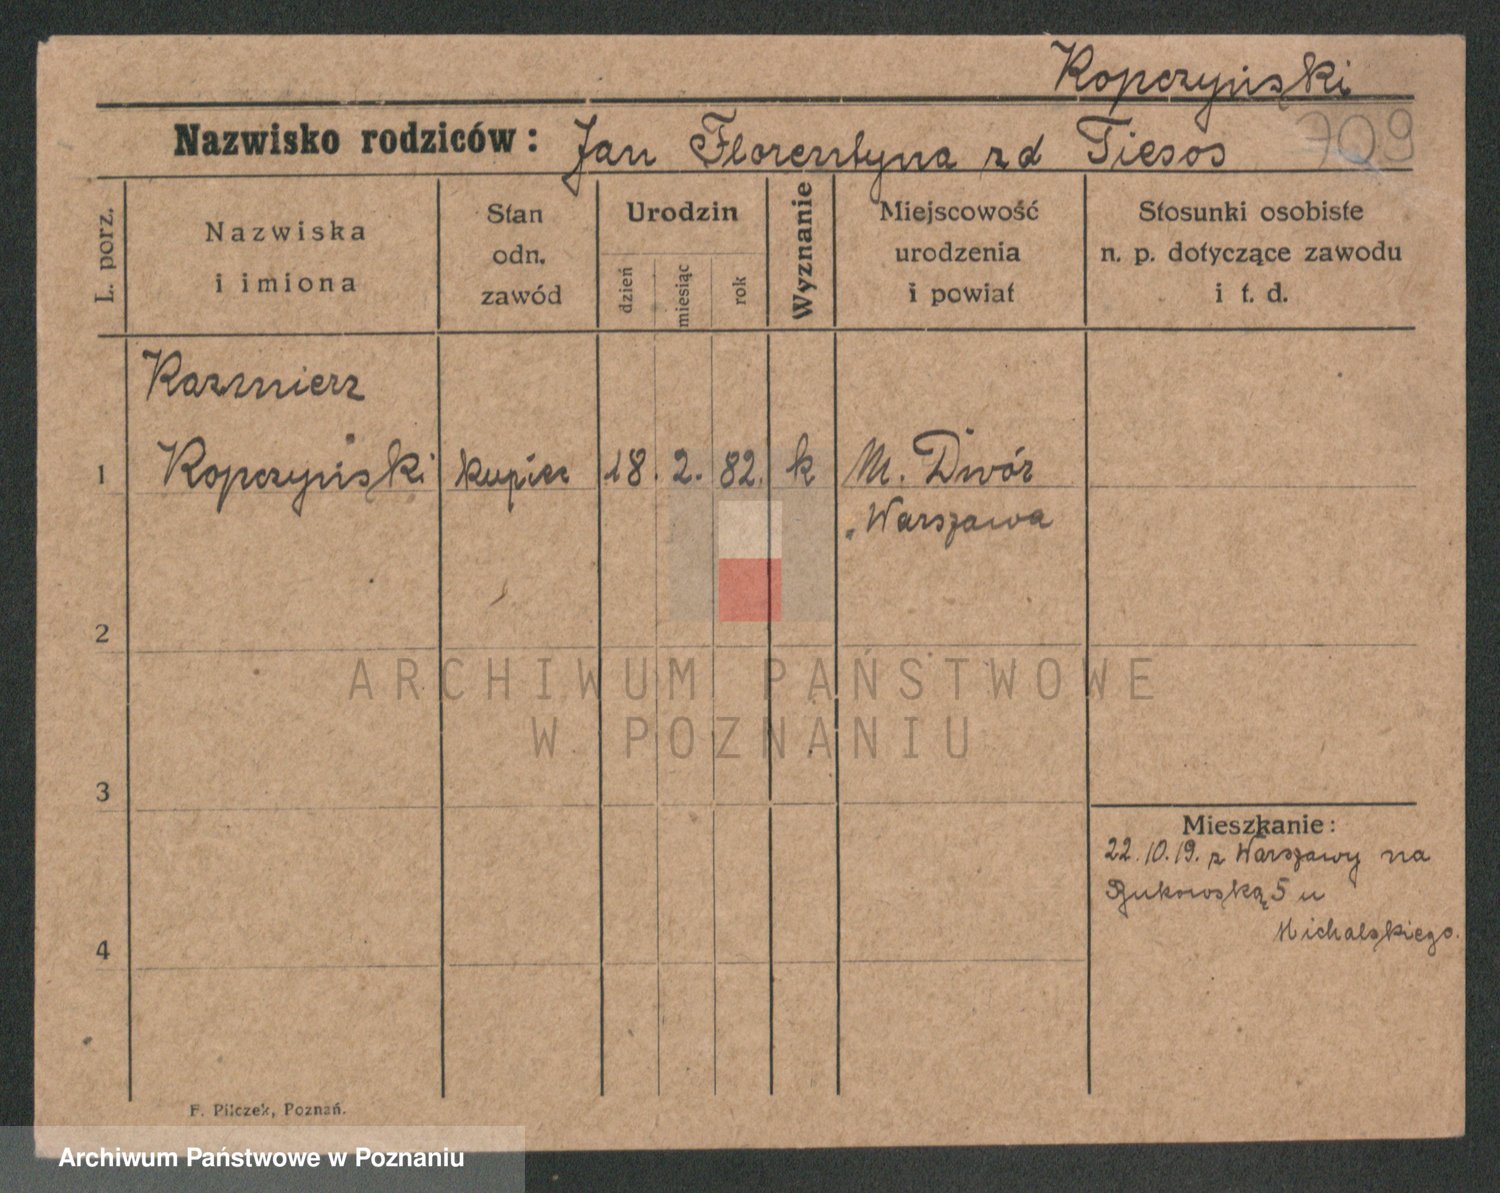 Kopczyński
Nazwisko rodziców: Jan Florentyna zd Tiesos
709
L. porz.
Nazwiska
i imiona
Stan
odn.
zawód
Urodzin
dzień
miesiąc
rok
Wyznanie
Miejscowość
urodzenia
i powiat
Stosunki osobiste
n. p. dotyczące zawodu
i t. d.
Kazmierz
1 Kopczyński kupiec 18. 2. 82. k M. Dwór
Warszawa
2
3
4
Mieszkanie:
22.10.19. z Warszawy na
Bukowską 5 u
Michalskiego.
F. Pilczek, Poznań.
ARCHIWUM PAŃSTWOWE
W POZNANIU
Archiwum Państwowe w Poznaniu